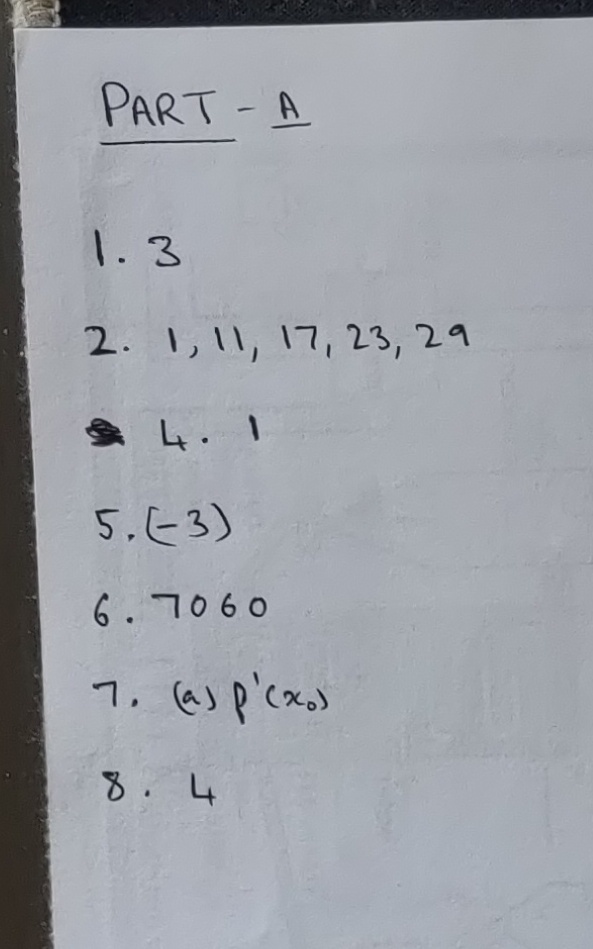 PART - A
1. 3
2. 1, 11, 17, 23, 29
4. 1
5. (-3)
6. 7060
7. (a) p'(x₀)
8. 4